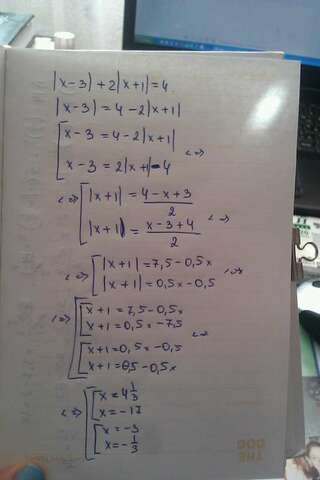 |x-3)+2|x+1|=4
|x-3)=4-2|x+1|
x-3=4-2|x+1|
x-3=2|x+1|-4 <=>
<=> |x+1|=(4-x+3)/2
|x+1|=(x-3+4)/2 <=>
<=> |x+1|=7,5-0,5x
|x+1|=0,5x-0,5 <=>
<=> x+1=7,5-0,5x
x+1=0,5x-7,5
x+1=0,5x-0,5 <=>
x+1=0,5-0,5x
<=> x=4 1/3
x=-17
x=-3
x=-1/3
THE
DOG